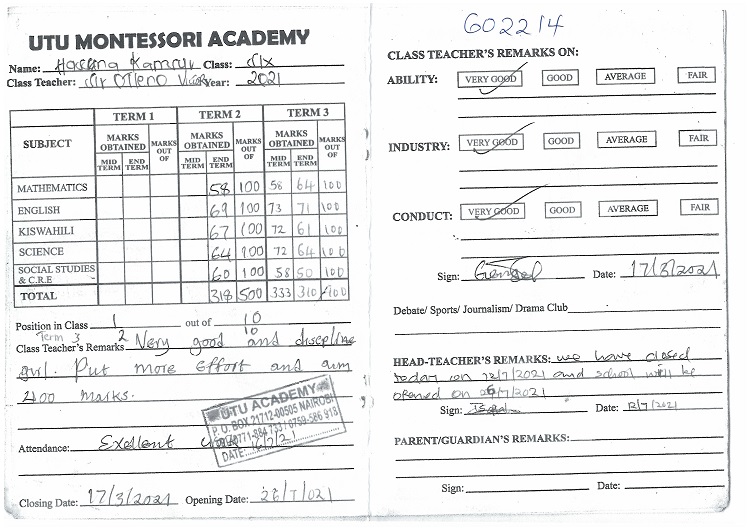 UTU MONTESSORI ACADEMY
Name: Class: six
Class Teacher: Year: 2021
SUBJECT TERM 1 TERM 2 TERM 3
MARKS OBTAINED MARKS OUT OF MARKS OBTAINED MARKS OUT OF MARKS OBTAINED MARKS OUT OF
MID TERM END TERM MID TERM END TERM MID TERM END TERM
MATHEMATICS 58 100 58 64 100
ENGLISH 69 100 73 71 100
KISWAHILI 67 100 72 61 100
SCIENCE 64 100 72 64 100
SOCIAL STUDIES & C.R.E 60 100 58 50 100
TOTAL 318 500 333 310
Position in Class 1 out of 10
Term 3 2 10
Class Teacher's Remarks Very good and discipline
girl. Put more effort and aim
400 marks.
UTU ACADEMY
P. O. BOX 21712-00505 NAIROBI
DATE:
Attendance: Exellent
Closing Date: 17/3/2021 Opening Date:
602214
CLASS TEACHER'S REMARKS ON:
ABILITY: VERY GOOD GOOD AVERAGE FAIR
INDUSTRY: VERY GOOD GOOD AVERAGE FAIR
CONDUCT: VERY GOOD GOOD AVERAGE FAIR
Sign: Date: 17/3/2021
Debate/ Sports/ Journalism/ Drama Club
HEAD-TEACHER'S REMARKS: we have closed
today on 12/7/2021 and school will be
opened on 26/7/2021
Sign: Date: 12/7/2021
PARENT/GUARDIAN'S REMARKS:
Sign: Date: